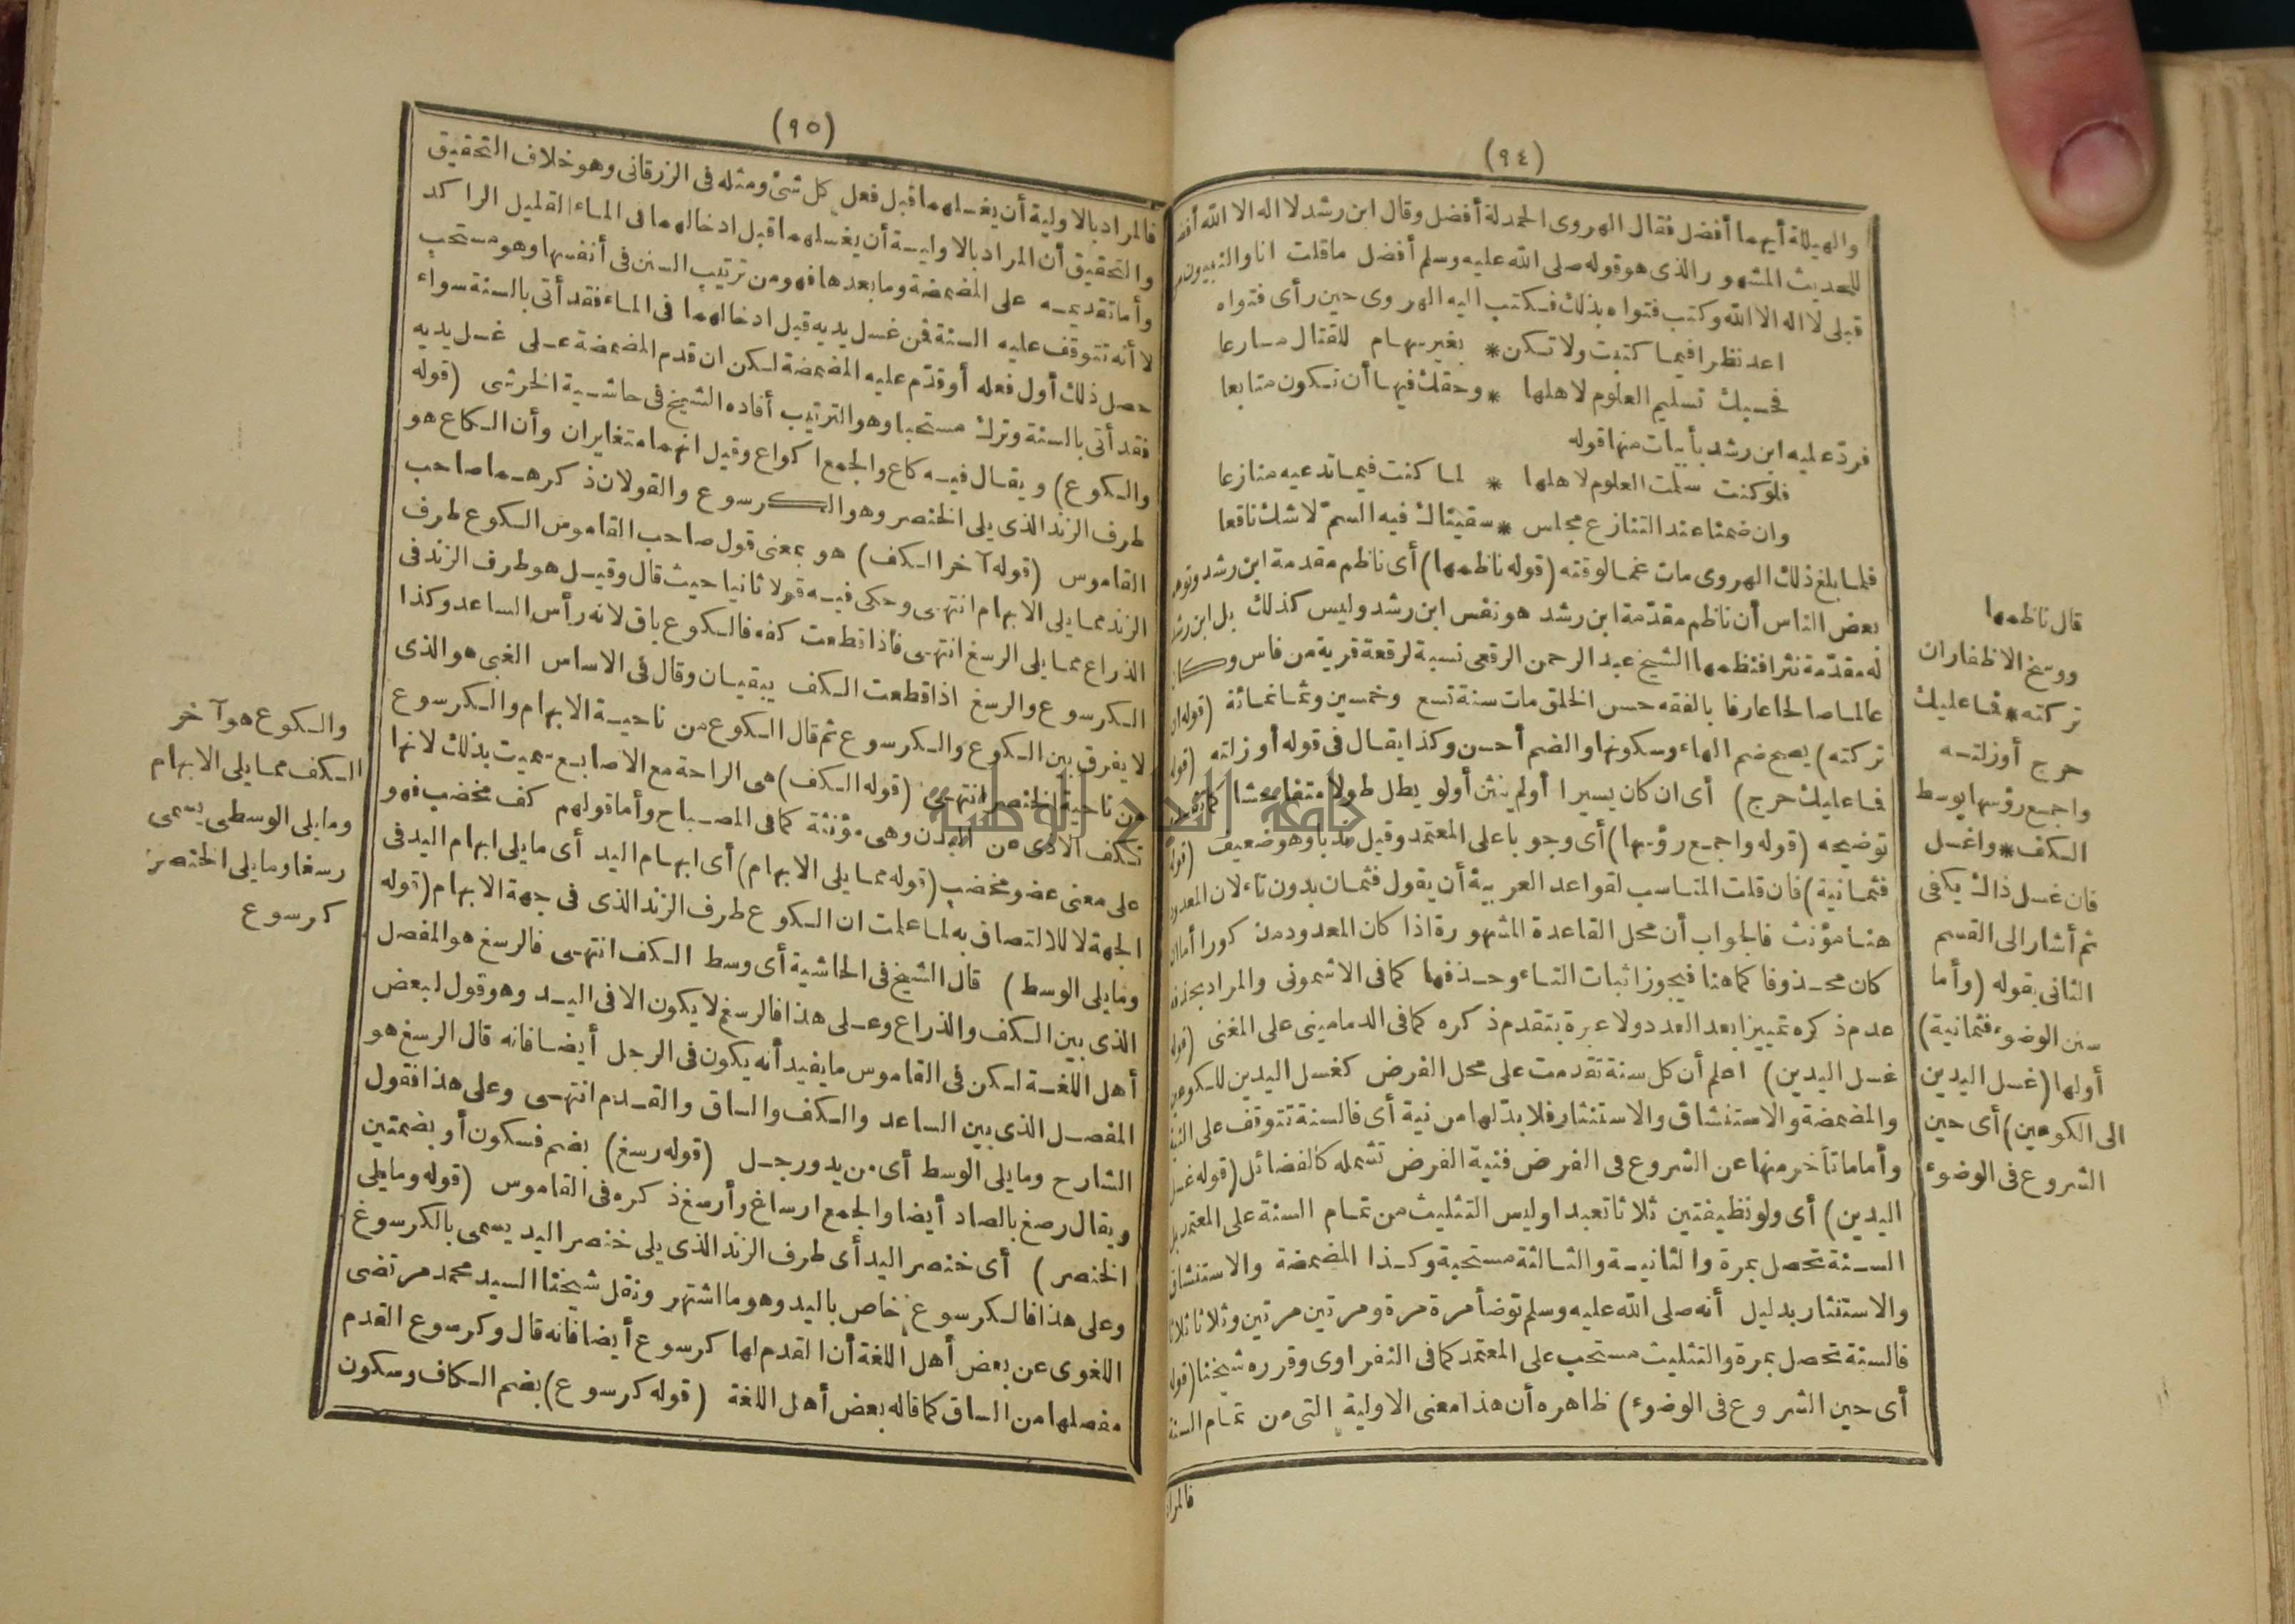 (٩٤)
والهيللة أيهما أفضل فقال الهروى الحمدلة أفضل وقال ابن رشد لا اله الا الله
للحديث المشهور الذى هو قوله صلى الله عليه وسلم أفضل ما قلت انا والنبيون
قبلى لا اله الا الله وكتب فتواه بذلك فكتب اليه الهروى حين رأى فتواه
اعد نظرا فيما كتبت ولا تكن * بغير سهام للقتال مسارعا
فحسبك تسليم العلوم لاهلها * وحقك فيها أن تكون متابعا
فردّ عليه ابن رشد بأبيات منها قوله
فلو كنت سلمت العلوم لاهلها * لما كنت فيما تدعيه منازعا
وان ضمنا عند التنازع مجلس * سقيناك فيه السمّ لا شك ناقعا
فلما بلغ ذلك الهروى مات غما لوقته (قوله ناظمها) أى ناظم مقدمة ابن رشد
بعض الناس أن ناظم مقدّمة ابن رشد هو نفس ابن رشد وليس كذلك بل ابن رشد
له مقدّمة نثرا فنظمها الشيخ عبد الرحمن الرقعى نسبة لرقعة قرية من فاس وكان
عالما صالحا عارفا بالفقه حسن الخلق مات سنة تسع وخمسين وثمانمائة (قوله
تركته) يصح ضم الهاء وسكونها والضم أحسن وكذا يقال فى قوله أو زلته (قوله
فما عليك حرج) أى ان كان يسيرا أو لم ينثن أو لو يطل طولا متفاحشا
توضيحه (قوله واجمع رؤسها) أى وجوبا على المعتمد وقيل ندبا وهو ضعيف (قوله
فثمانية) فان قلت المناسب لقواعد العربية أن يقول فثمان بدون تاء لان المعدود
هنا مؤنث فالجواب أن محل القاعدة المشهورة اذا كان المعدود مذكورا أما ان
كان محذوفا كما هنا فيجوز اثبات التاء وحذفها كما فى الاشمونى والمراد بحذفه
عدم ذكره تمييزا بعد العدد ولا عبرة بتقدم ذكره كما فى الدمامينى على المغنى (قوله
غسل اليدين) اعلم أن كل سنة تقدمت على محل الفرض كغسل اليدين للكوعين
والمضمضة والاستنشاق والاستنثار فلا بدّ لها من نية أى فالسنة تتوقف على النية
وأما ما تأخر منها عن الشروع فى الفرض فنية الفرض تشمله كالفضائل (قوله غسل
اليدين) أى ولو نظيفتين ثلاثا تعبدا وليس التثليث من تمام السنة على المعتمد بل
السنة تحصل بمرة والثانية والثالثة مستحبة وكذا المضمضة والاستنشاق
والاستنثار بدليل أنه صلى الله عليه وسلم توضأ مرة مرة ومرتين مرتين وثلاثا ثلاثا
فالسنة تحصل بمرة والتثليث مستحب على المعتمد كما فى النفراوى وقرره شيخنا (قوله
أى حين الشروع فى الوضوء) ظاهره أن هذا معنى الاولية التى من تمام السنة
فالمراد
قال ناظمها
ووسخ الاظفار ان
تركته * فما عليك
حرج أو زلته
واجمع رؤسها بوسط
الكف * واغسل
فان غسل ذاك يكفى
ثم أشار الى القسم
الثانى بقوله (وأما
سنن الوضوء فثمانية)
أولها (غسل اليدين
الى الكوعين) أى حين
الشروع فى الوضوء
(٩٥)
فالمراد بالاولية أن يغسلهما قبل فعل كل شئ ومثله فى الزرقانى وهو خلاف التحقيق
والتحقيق أن المراد بالاولية أن يغسلهما قبل ادخالهما فى الماء القليل الراكد
وأما تقديمه على المضمضة وما بعدها فهو من ترتيب السنن فى أنفسها وهو مستحب
لا أنه تتوقف عليه السنة فن غسل يديه قبل ادخالهما فى الماء فقد أتى بالسنة سواء
حصل ذلك أول فعله أو قدّم عليه المضمضة لكن ان قدم المضمضة على غسل يديه
فقد أتى بالسنة وترك مستحبا وهو الترتيب أفاده الشيخ فى حاشية الخرشى (قوله
والكوع) ويقال فيه كاع والجمع اكواع وقيل انهما متغايران وأن الكاع هو
طرف الزند الذى يلى الخنصر وهو الكرسوع والقولان ذكرهما صاحب
القاموس (قوله آخر الكف) هو بمعنى قول صاحب القاموس الكوع طرف
الزند مما يلى الابهام انتهى وحكى فيه قولا ثانيا حيث قال وقيل هو طرف الزند فى
الذراع مما يلى الرسغ انتهى فاذا قطعت كفه فالكوع باق لانه رأس الساعد وكذا
الكرسوع والرسغ اذا قطعت الكف يبقيان وقال فى الاساس الغبى هو الذى
لا يفرق بين الكوع والكرسوع ثم قال الكوع من ناحية الابهام والكرسوع
من ناحية الخنصر انتهى (قوله الكف) هى الراحة مع الاصابع سميت بذلك لانها
تكف الاذى عن البدن وهى مؤنثة كما فى المصباح وأما قولهم كف مخضب فهو
على معنى عضو مخضب (قوله مما يلى الابهام) أى ابهام اليد أى ما يلى ابهام اليد فى
الجهة لا للالتصاق به لما علمت ان الكوع طرف الزند الذى فى جهة الابهام (قوله
وما يلى الوسط) قال الشيخ فى الحاشية أى وسط الكف انتهى فالرسغ هو المفصل
الذى بين الكف والذراع وعلى هذا فالرسغ لا يكون الا فى اليد وهو قول لبعض
أهل اللغة لكن فى القاموس ما يفيد أنه يكون فى الرجل أيضا فانه قال الرسغ هو
المفصل الذى بين الساعد والكف والساق والقدم انتهى وعلى هذا فقول
الشارح وما يلى الوسط أى من يد ورجل (قوله رسغ) بضم فسكون أو بضمتين
ويقال رصغ بالصاد أيضا والجمع ارساغ وأرسغ ذكره فى القاموس (قوله وما يلى
الخنصر) أى خنصر اليد أى طرف الزند الذى يلى خنصر اليد يسمى بالكرسوع
وعلى هذا فالكرسوع خاص باليد وهو ما اشتهر ونقل شيخنا السيد محمد مرتضى
اللغوى عن بعض أهل اللغة أن القدم لها كرسوع أيضا فانه قال وكرسوع القدم
مفصلها من الساق كما قاله بعض أهل اللغة (قوله كرسوع) بضم الكاف وسكون
والكوع هو آخر
الكف مما يلى الابهام
وما يلى الوسطى يسمى
رسغا وما يلى الخنصر
كرسوع
جامعة النجاح الوطنية